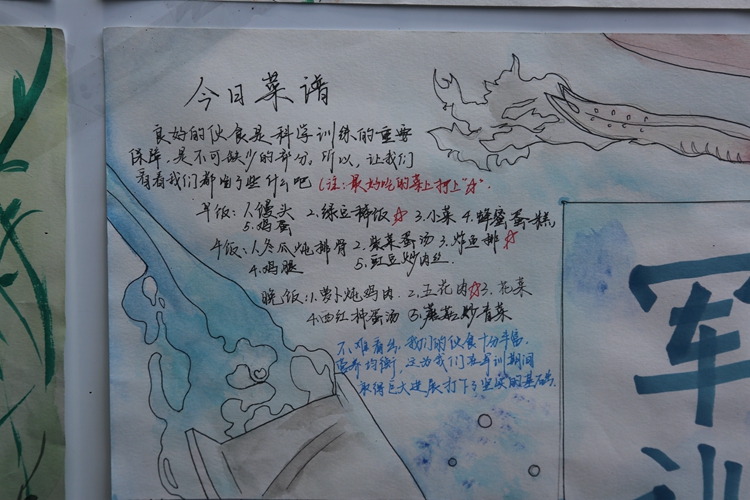 今日菜谱
良好的伙食是科学训练的重要
保障,是不可缺少的部分。所以,让我们
看看我们都吃了些什么吧(注:最好吃的菜上打上"☆".
早饭:1.馒头 2.绿豆稀饭☆ 3.小菜 4.蜂蜜蛋糕
5.鸡蛋
午饭:1.冬瓜炖排骨 2.紫菜蛋汤 3.炸鱼排☆
4.鸡腿 5.豇豆炒肉丝.
晚饭:1.萝卜炖鸡肉 2.五花肉☆3.花菜
4.西红柿蛋汤 5.蘑菇炒青菜
不难看出,我们的伙食十分丰富,
营养均衡,这为我们在军训期间
取得巨大进展打下了坚实的基石.
军
训